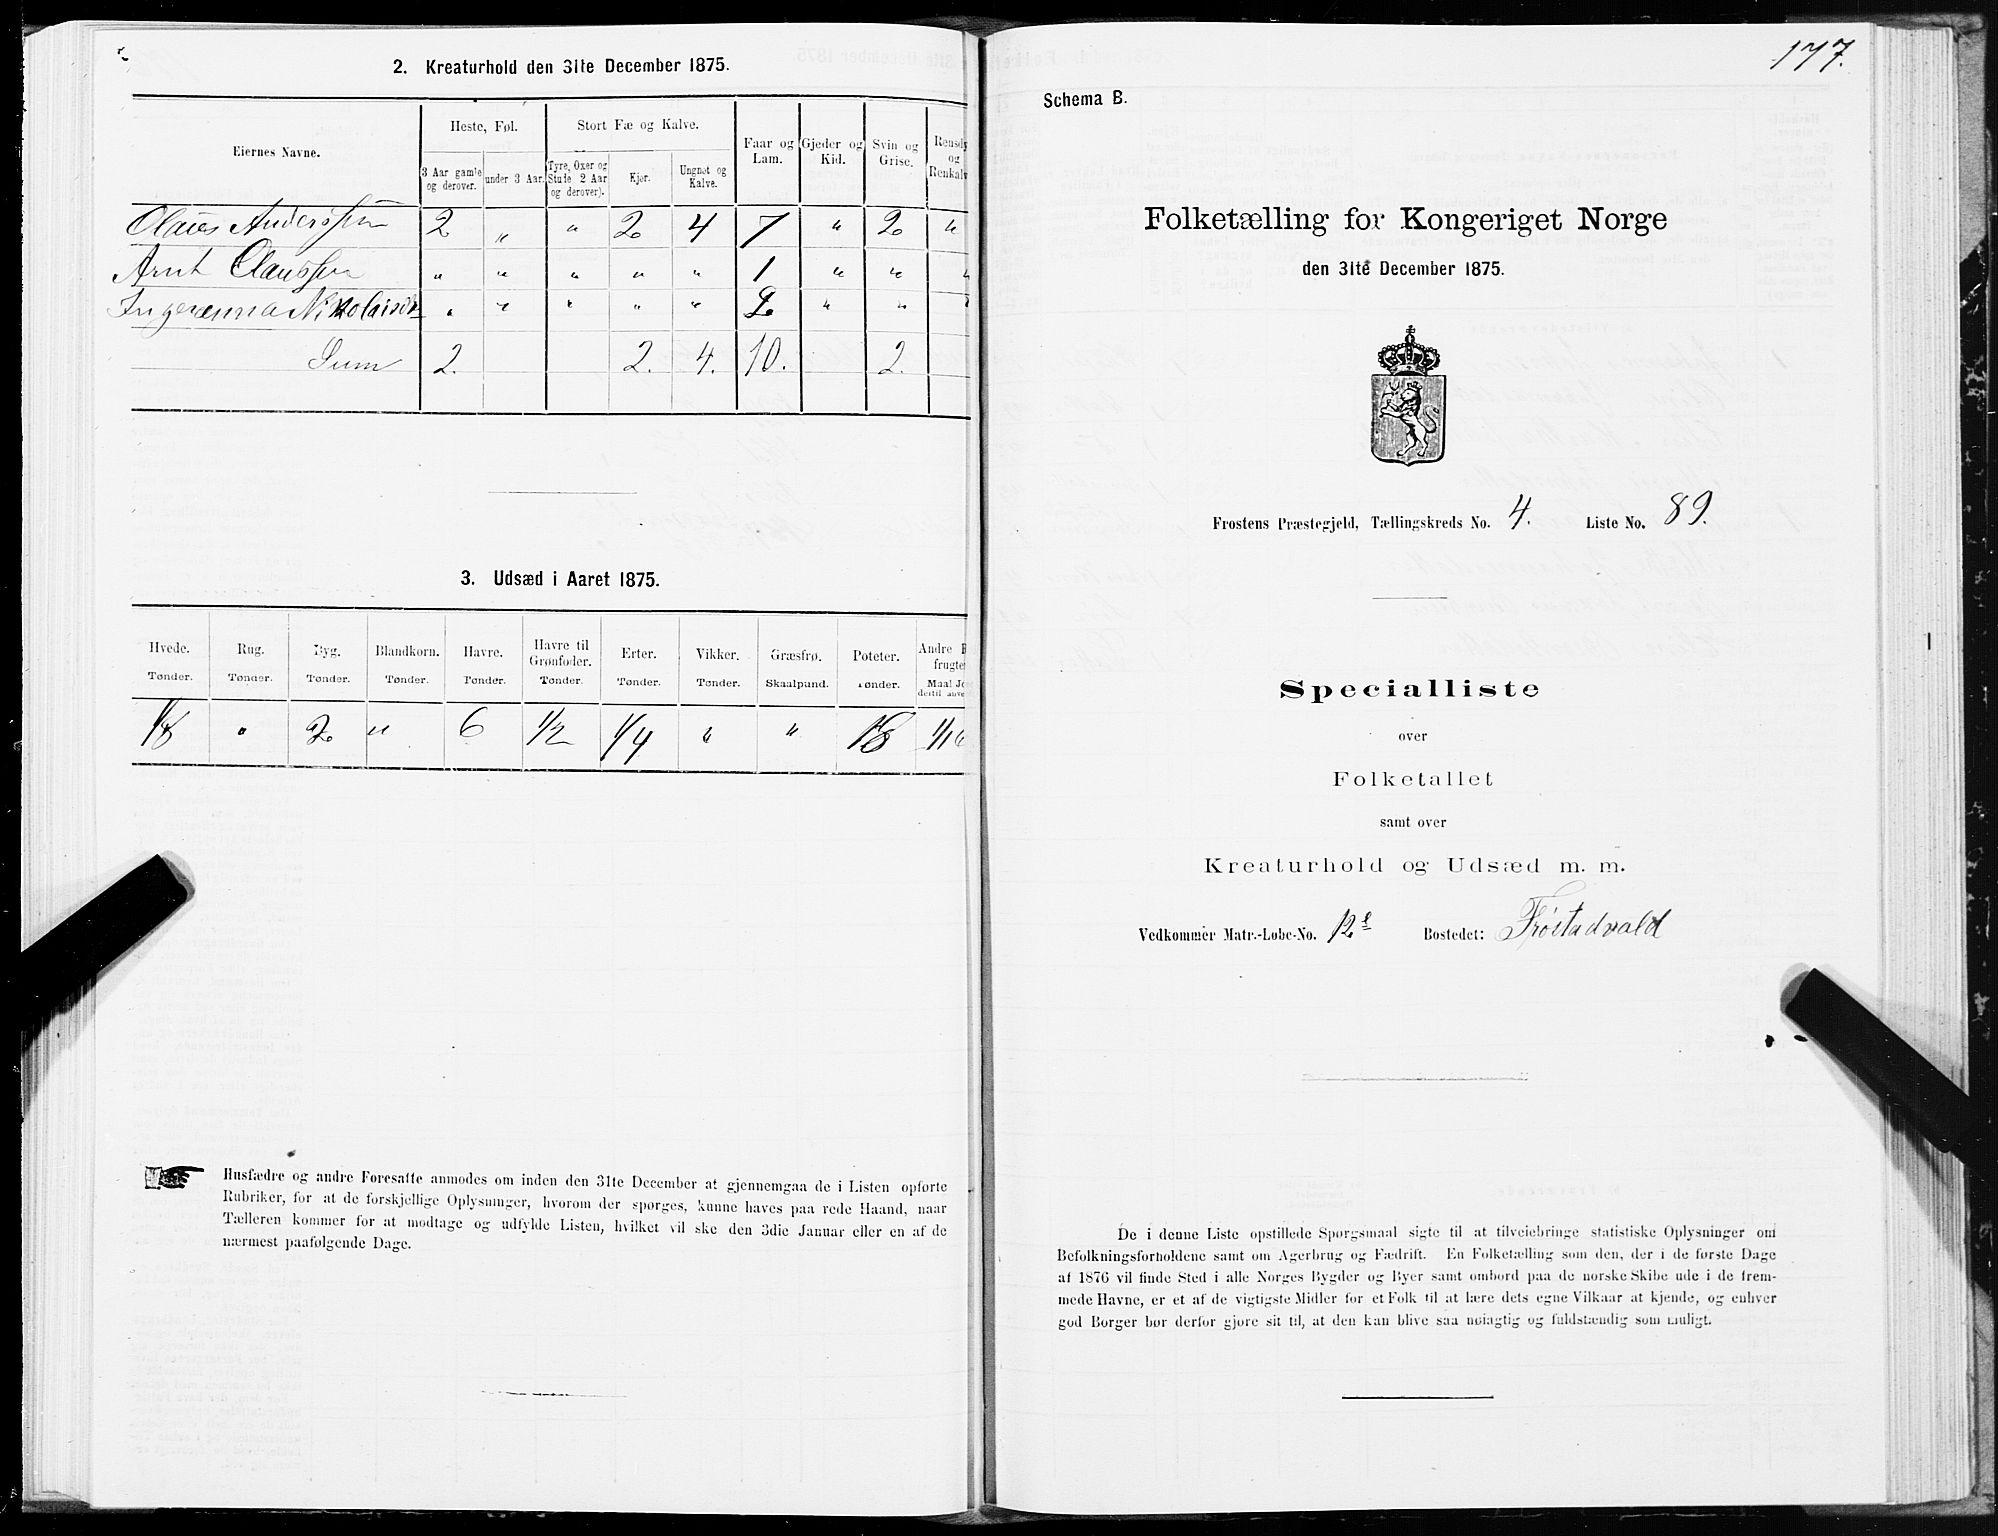 2. Kreaturhold den 31te December 1875.
Eiernes Navne.
Heste, Føl.
Stort Fæ og Kalve.
Faar og Lam.
Gjeder og Kid.
Svin og Grise.
Rensdy
og
Renkalv
3 Aar gamle og derover.
under 3 Aar.
Tyre, Oxer og Stude 2 Aar og derover).
Kjør.
Ungnøt og Kalve.
Olaus Anderssen 2 „ „ 2 4 7 „ 2 „
Arnt Olaussen „ „ „ „ „ 1 „ „ „
Ingeranna Nikolaisdt „ „ „ „ „ 2 „ „ „
Sum 2. 2. 4. 10. 2.
3. Udsæd i Aaret 1875.
Hvede. Rug. Byg. Blandkorn. Havre. Havre til Grønfoder. Erter. Vikker. Græsfrø. Poteter. Andre R
frugter
Tønder. Tønder. Tønder. Tønder. Tønder. Tønder. Tønder. Tønder. Skaalpund. Tønder. Maal Jo
dertil anve
1/8 „ 2 „ 6 1/2 1/4 „ „ 18 1/16
Husfædre og andre Foresatte anmodes om inden den 31te December at gjennemgaa de i Listen opførte
Rubriker, for at de forskjellige Oplysninger, hvorom der spørges, kunne haves paa rede Haand, naar
Tælleren kommer for at modtage og udfylde Listen, hvilket vil ske den 3die Januar eller en af de
nærmest paafølgende Dage.
177.
Schema B.
Folketælling for Kongeriget Norge
den 31te December 1875.
Frostens Præstegjeld, Tællingskreds No. 4. Liste No. 89.
Specialliste
over
Folketallet
samt over
Kreaturhold og Udsæd m. m.
Vedkommer Matr.-Løbe-No. 12e Bostedet: Frøstadvald
De i denne Liste opstillede Spørgsmaal sigte til at tilveiebringe statistiske Oplysninger om
Befolkningsforholdene samt om Agerbrug og Fædrift. En Folketælling som den, der i de første Dage
af 1876 vil finde Sted i alle Norges Bygder og Byer samt ombord paa de norske Skibe ude i de frem-
mede Havne, er et af de vigtigste Midler for et Folk til at lære dets egne Vilkaar at kjende, og enhver
god Borger bør derfor gjøre sit til, at den kan blive saa nøiagtig og fuldstændig som muligt.